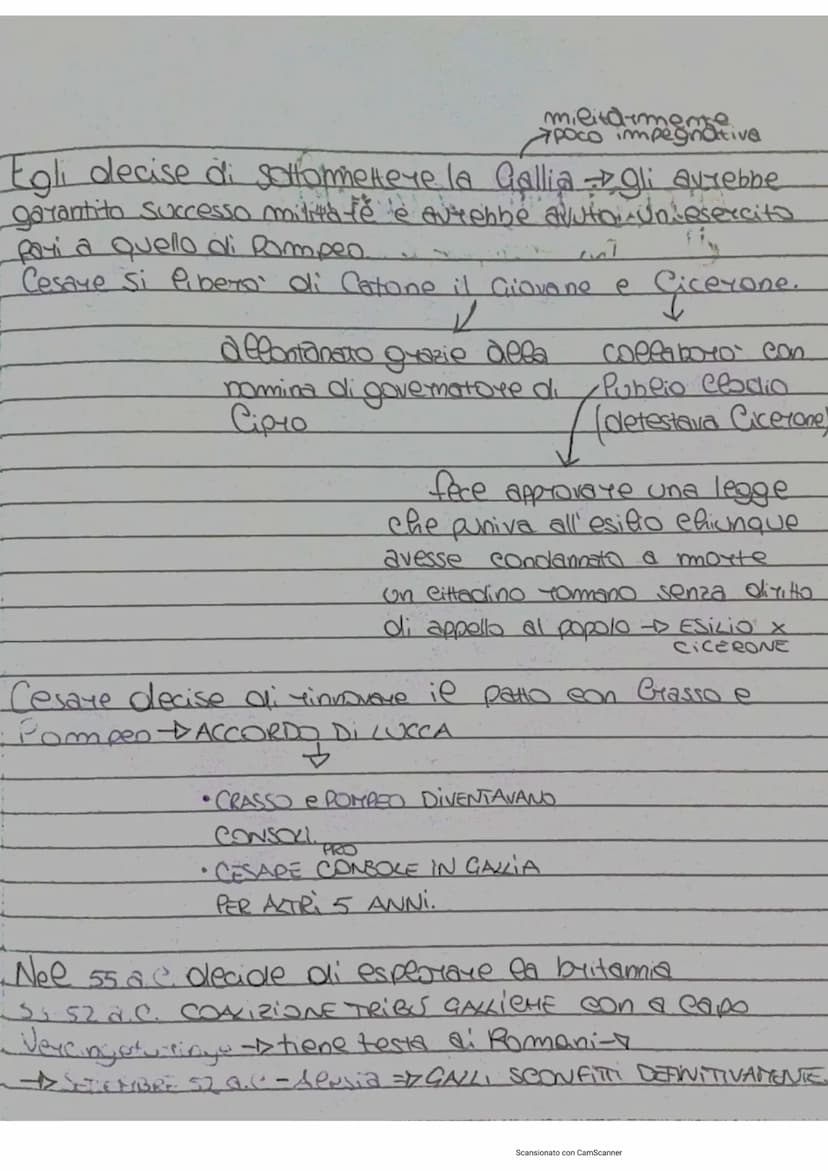 militarmente
→poco impegnativa
Egli decise di sottomettere la Gallia → gli avrebbe
garantito successo militare e avrebbe avuto un esercito
pari a quello di Pompeo
Cesare si liberò di Catone il Giovane e Cicerone.
allontanato grazie alla
nomina di governatore di
Cipro
collaborò con
Publio Clodio
(detestava Cicerone)
fece approvare una legge
che puniva all'esilio chiunque
avesse condannato a morte
un cittadino romano senza diritto
di appello al popolo → ESILIO X
CICERONE
Cesare decise di rinnovare il patto con Crasso e
Pompeo → ACCORDO DI LUCCA
• CRASSO e POMPEO DIVENTAVANO
CONSOLI.
PRO
• CESARE CONSOLE IN GALLIA
PER ALTRI 5 ANNI.
Nel 55 a.C. decide di esplorare la britannia
52 a.C. COALIZIONE TRIBÙ GALLICHE con a capo
Vercingetorige → tiene testa ai Romani →
→ SETTEMBRE 52 a.C - Alesia ⇒ GALLI SCONFITTI DEFINITIVAMENTE.
Scansionato con CamScanner